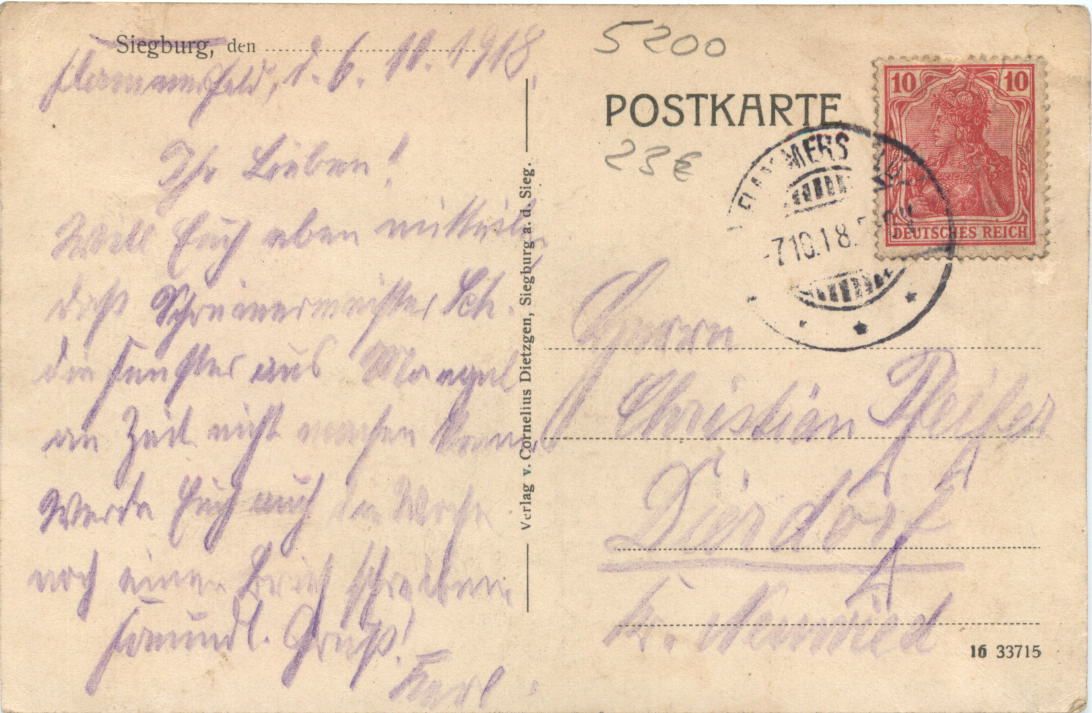 Siegburg, den
Flammersfeld, d. 6. 10. 1918.
Ihr Lieben!
Will Euch eben mitteilen
daß Schreinermeister Sch.
die Fenster aus Mangel
an Zeit nicht machen kann.
Werde Euch auch die Woche
noch einen Brief schreiben.
Freundl. Gruß!
Karl.
Verlag v. Cornelius Dietzgen, Siegburg a. d. Sieg.
5200
POSTKARTE
23€
10 10
DEUTSCHES REICH
FLAMMERSFELD
7.10.18.
Herrn
Christian Pfeifer
Dierdorf
Kr. Neuwied
16 33715